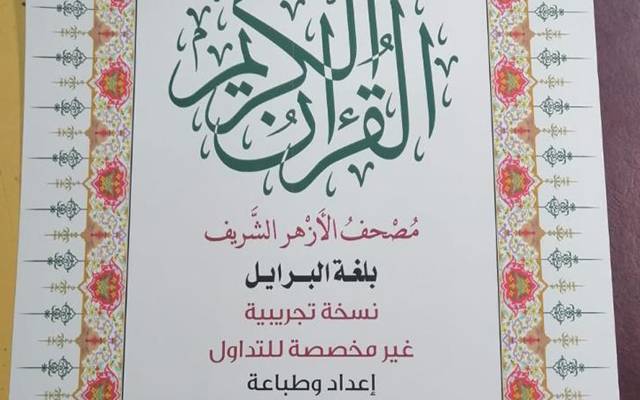 القرآن الكريم
مُصْحَفُ الأَزْهَر الشَّرِيف
بلغة البرايل
نسخة تجريبية
غير مخصصة للتداول
إعداد وطباعة